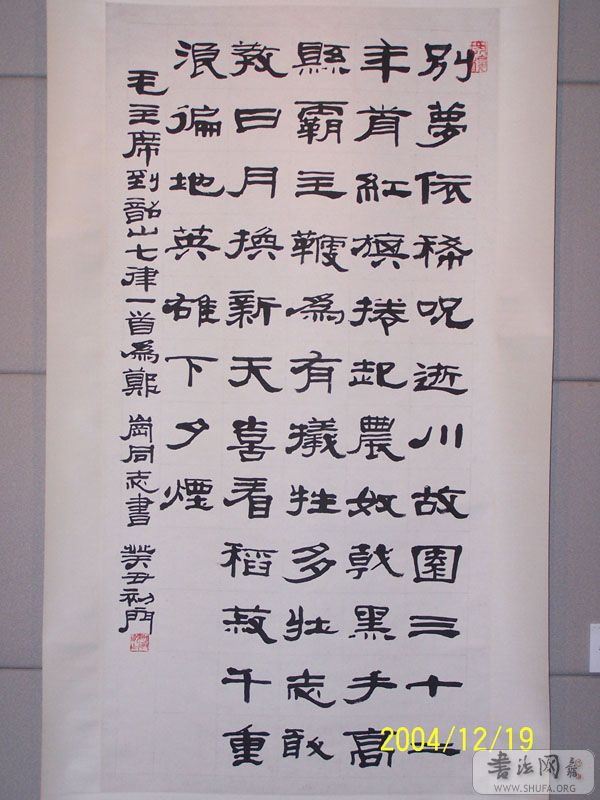 别夢依稀呪逝川故園三十二
年前紅旗捲起農奴戟黑手高
縣霸主鞭爲有犧牲多壯志敢
教日月換新天喜看稻菽千重
浪徧地英雄下夕煙
毛主席到韶山七律一首爲鄭崗同志書 癸丑
2004/12/19
书法网
WWW.SHUFA.ORG